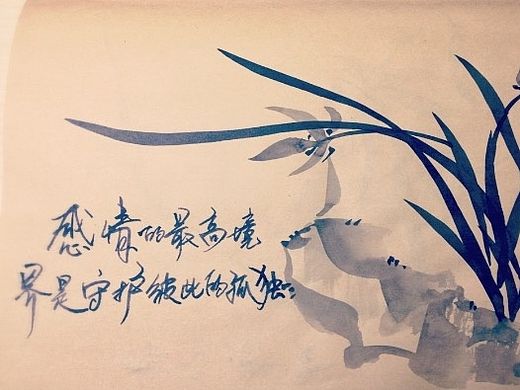 感情的最高境
界是守护彼此的孤独。